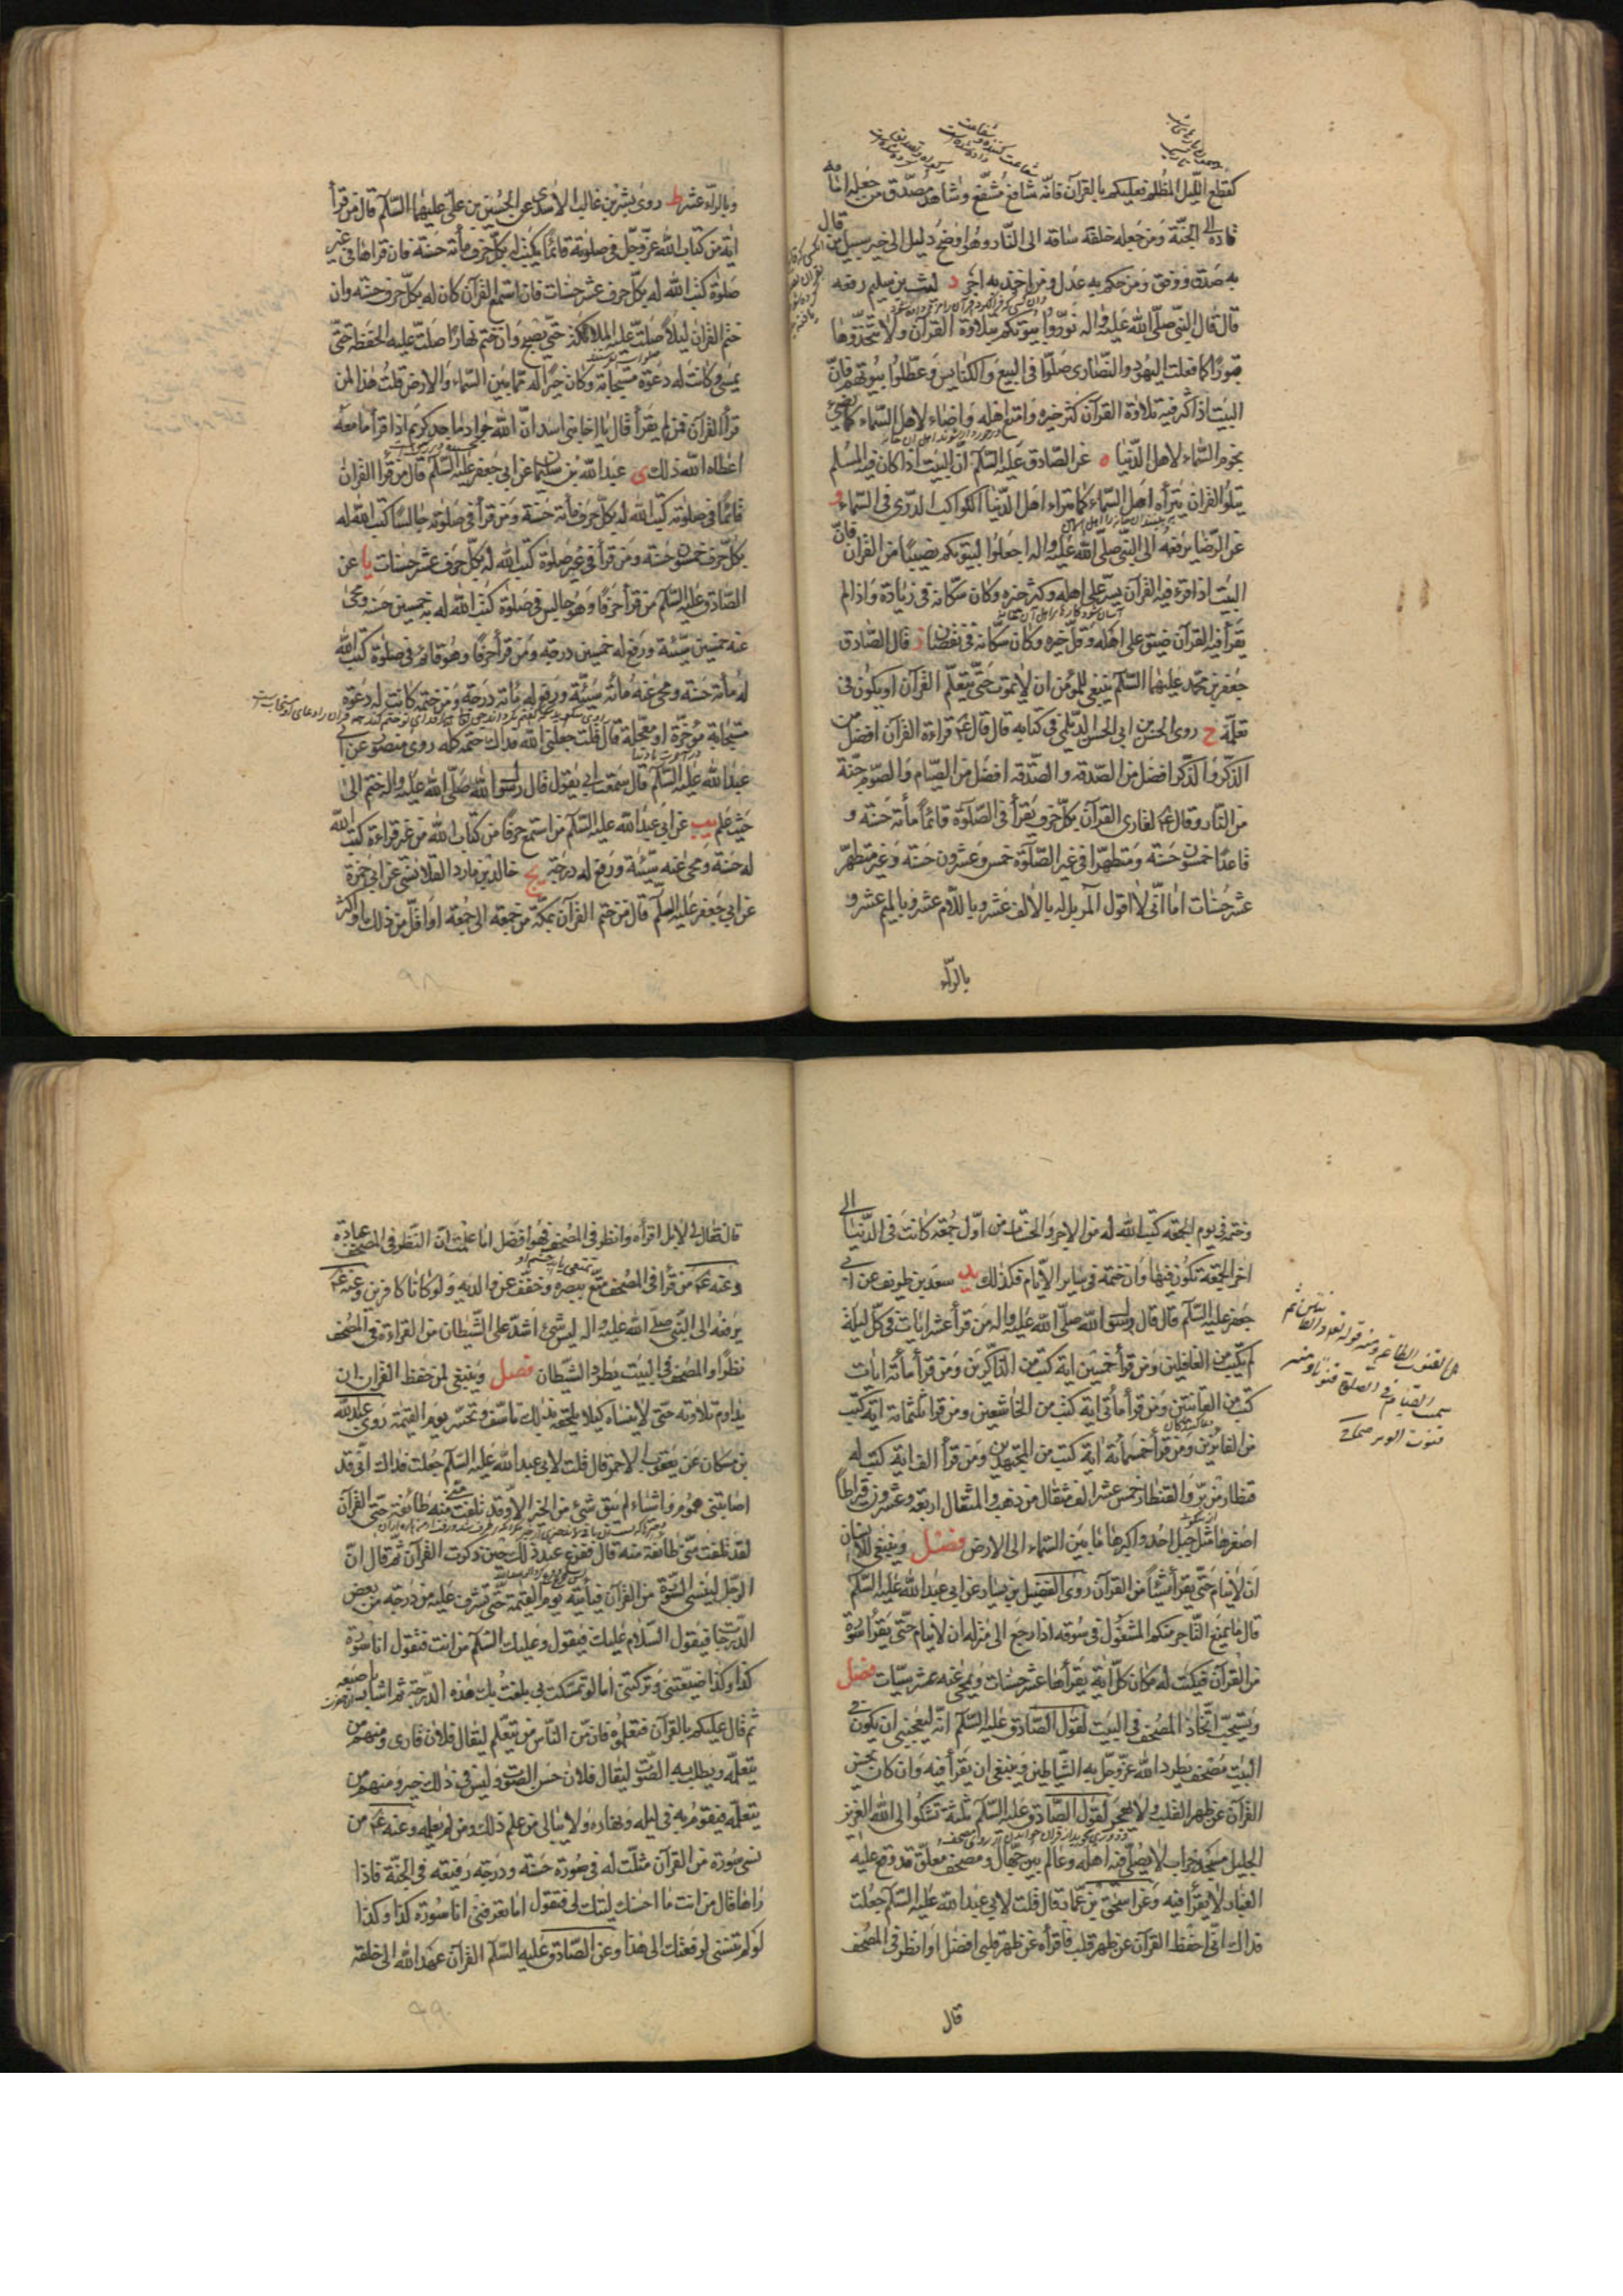 كقطع الليل المظلم فعليكم بالقرآن فانه شافع مشفع وشاهد مصدق من جعله امامه
قاده الى الجنة ومن جعله خلفه ساقه الى النار وهو اوضح دليل الى خير سبيل من قال
به صدق ووفق ومن حكم به عدل ومن اخذ به اجر د ليث بن سليم رفعه
قال قال النبي صلى الله عليه واله نوروا بيوتكم بتلاوة القرآن ولا تتخذوها
قبورا كما فعلت اليهود والنصارى صلوا في البيع والكنايس وعطلوا بيوتهم فان
البيت اذا كثر فيه تلاوة القرآن كثر خيره وامتع اهله واضاء لاهل السماء كما تضئ
نجوم السماء لاهل الدنيا ه عن الصادق عليه السلم ان البيت اذا كان فيه المسلم
يتلو القرآن يتراه اهل السماء كما يتراءا اهل الدنيا الكواكب الدري في السماء و
عن الرضا يرفعه الى النبي صلى الله عليه واله اجعلوا لبيوتكم نصيبا من القرآن فان
البيت اذا قرء فيه القرآن يسر على اهله وكثر خيره وكان سكانه في زيادة واذا لم
يقرأ فيه القرآن ضيق على اهله وقل خيره وكان سكانه في نقصان ز قال الصادق
جعفر بن محمد عليهما السلم ينبغي للمؤمن ان لا يموت حتى يتعلم القرآن او يكون في
تعلمه ح روى الحسن بن ابي الحسن الديلمي في كتابه قال قال ع قراءة القرآن افضل من
الذكر والذكر افضل من الصدقه والصدقه افضل من الصيام والصوم جنة
من النار وقال ع لقارى القرآن بكل حرف يقرأ في الصلوة قائما مأة حسنة و
قاعدا خمسون حسنة ومتطهرا في غير الصلوة خمس وعشرون حسنة وغير متطهر
عشر حسنات اما اني لا اقول المر بل له بالالف عشر وباللام عشر وبالميم عشر و
بالراء
وبالراء عشر ط روى بشر بن غالب الاسدى عن الحسين بن علي عليهما السلم قال من قرأ
اية من كتاب الله عز وجل في صلوته قائما يكتب له بكل حرف مأة حسنة فان قراها في غير
صلوة كتب الله له بكل حرف عشر حسنات فان استمع القرآن كان له بكل حرف حسنة وان
ختم القرآن ليلا صلت عليه الملائكة حتى يصبح وان ختم نهارا صلت عليه الحفظة حتى
يمسي وكانت له دعوة مستجابة وكان خيرا له مما بين السماء والارض قلت هذا لمن
قرأ القرآن فمن لم يقرأ قال يا اخا بني اسد ان الله جواد ماجد كريم اذا قرأ ما معه
اعطاه الله ذلك ى عبد الله بن سليمان عن ابي جعفر عليه السلم قال من قرأ القرآن
قائما في صلوته كتب الله له بكل حرف مأة حسنة ومن قرأ في صلوته جالسا كتب الله له
بكل حرف خمسون حسنة ومن قرأ في غير صلوة كتب الله له بكل حرف عشر حسنات يا عن
الصادق عليه السلم من قرأ حرفا وهو جالس في صلوة كتب الله له به خمسين حسنة ومحى
عنه خمسين سيئة ورفع له خمسين درجة ومن قرأ حرفا وهو قائم في صلوة كتب الله
له مأة حسنة ومحى عنه مأة سيئة ورفع له مأة درجة ومن ختمه كانت له دعوة
مستجابة مؤخرة او معجلة قال قلت جعلني الله فداك ختمه كله روى منصور عن ابي
عبد الله عليه السلم قال سمعت ابي يقول قال رسول الله صلى الله عليه واله ختم الى
حيث علم يب عن ابي عبد الله عليه السلم من استمع حرفا من كتاب الله من غير قراءة كتب الله
له حسنة ومحى عنه سيئة ورفع له درجة يج خالد بن مارد القلانسي عن ابي حمزة
عن ابي جعفر عليه السلم قال من ختم القرآن بمكة من جمعة الى جمعة او اقل من ذلك او اكثر
٩٨
وختمه في يوم الجمعة كتب الله له من الاجر والحسنات من اول جمعة كانت في الدنيا الى
اخر الجمعة تكون فيها وان ختمه في ساير الايام فكذلك يد سعد بن طريف عن ابي
جعفر عليه السلم قال قال رسول الله صلى الله عليه واله من قرأ عشر ايات في كل ليلة
لم يكتب من الغافلين ومن قرأ خمسين اية كتب من الذاكرين ومن قرأ مأة ايات
كتب من القانتين ومن قرأ مأتى اية كتب من الخاشعين ومن قرأ ثلثمائة اية كتب
من الفائزين ومن قرأ خمسمائة اية كتب من المجتهدين ومن قرأ الف اية كتب له
قنطار من بر والقنطار خمس عشر الف مثقال من ذهب والمثقال اربعة وعشرون قيراطا
اصغرها مثل جبل احد واكبرها ما بين السماء الى الارض فصل وينبغي للانسان
ان لا ينام حتى يقرأ شيئا من القرآن روى الفضيل بن يسار عن ابي عبد الله عليه السلم
قال ما يمنع التاجر منكم المشغول في سوقه اذا رجع الى منزله ان لا ينام حتى يقرأ سورة
من القرآن فيكتب له مكان كل اية يقرأها عشر حسنات ويمحى عنه عشر سيئات فصل
ويستحب اتخاذ المصحف في البيت لقول الصادق عليه السلم انه ليعجبني ان يكون في
البيت مصحف يطرد الله عز وجل به الشياطين وينبغي ان يقرأ فيه وان كان يحسن
القرآن عن ظهر القلب ولا يهجر لقول الصادق عليه السلم ثلثة تشكوا الى الله العزيز
الجليل مسجد خراب لا يصلى فيه اهله وعالم بين جهال ومصحف معلق قد وقع عليه
الغبار لا يقرأ فيه وعن اسحق بن عمار قال قلت لابي عبد الله عليه السلم جعلت
فداك اني احفظ القرآن عن ظهر قلب فاقرأه عن ظهر قلبي افضل او انظر في المصحف
قال
قال فقال لي لا بل اقرأه وانظر في المصحف فهو افضل اما علمت ان النظر في المصحف عبادة
وعنه ع من قرأ في المصحف متع ببصره وخفف عن والديه ولو كانا كافرين وعنه ع
يرفعه الى النبي صلى الله عليه واله ليس شئ اشد على الشيطان من القراءة في المصحف
نظرا والمصحف في البيت يطرد الشيطان فصل وينبغي لمن حفظ القرآن ان
يداوم تلاوته حتى لا ينساه كيلا يلحقه بذلك تاسف وتحسر يوم القيمة روى عبد الله
بن مسكان عن يعقوب الاحمر قال قلت لابي عبد الله عليه السلم جعلت فداك اني قد
اصابتني هموم واشياء لم يبق شئ من الخير الا وقد تفلت مني منه طائفة حتى القرآن
لقد تفلت مني طائفة منه قال ففزع عند ذلك حين ذكرت القرآن ثم قال ان
الرجل لينسى السورة من القرآن فيأتيه يوم القيمة حتى تشرف عليه من درجة من بعض
الدرجات فيقول السلام عليك فيقول وعليك السلم من انت فتقول انا سورة
كذا وكذا ضيعتني وتركتني اما لو تمسكت بي بلغت بك هذه الدرجة ثم اشار باصبعه
ثم قال عليكم بالقرآن فتعلموه فان من الناس من يتعلم ليقال فلان قارى ومنهم من
يتعلمه ويطلب به الصوت ليقال فلان حسن الصوت وليس في ذلك خير ومنهم من
يتعلمه فيقوم به في ليله ونهاره ولا يبالى من علم ذلك ومن لم يعلمه وعنه ع من
نسى سورة من القرآن مثلت له في صورة حسنة ودرجة رفيعة في الجنة فاذا
راها قال من انت ما احسنك ليتك لي فتقول اما تعرفني انا سورة كذا وكذا
لو لم تنسني لرفعتك الى هذا وعن الصادق عليه السلم القرآن عهد الله الى خلقه
٩٩